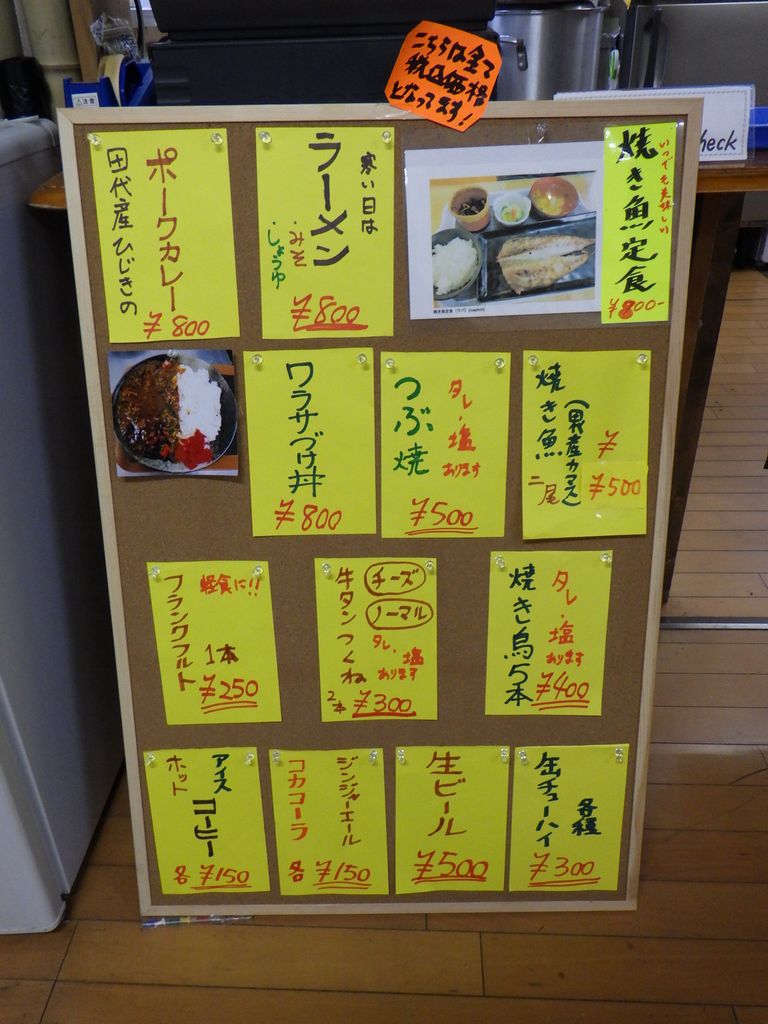 こちらは全て
税込価格
となってます!
heck
田代産ひじきの
ポークカレー
¥800
寒い日は
ラーメン
・みそ
・しょうゆ
¥800
いつでも美味しい
焼き魚定食
¥800-
ワラサづけ丼
¥800
つぶ焼
タレ・塩
あります
¥500
焼き魚
(男鹿産カマス)
二尾
¥
¥500
軽食に!!
フランクフルト
1本
¥250
牛タンつくね
チーズ
ノーマル
タレ・塩
あります
2本
¥300
焼き鳥5本
タレ・塩
あります
¥400
アイス
ホット
コーヒー
各¥150
ジンジャーエール
コカコーラ
各¥150
生ビール
¥500
各種
缶チューハイ
¥300